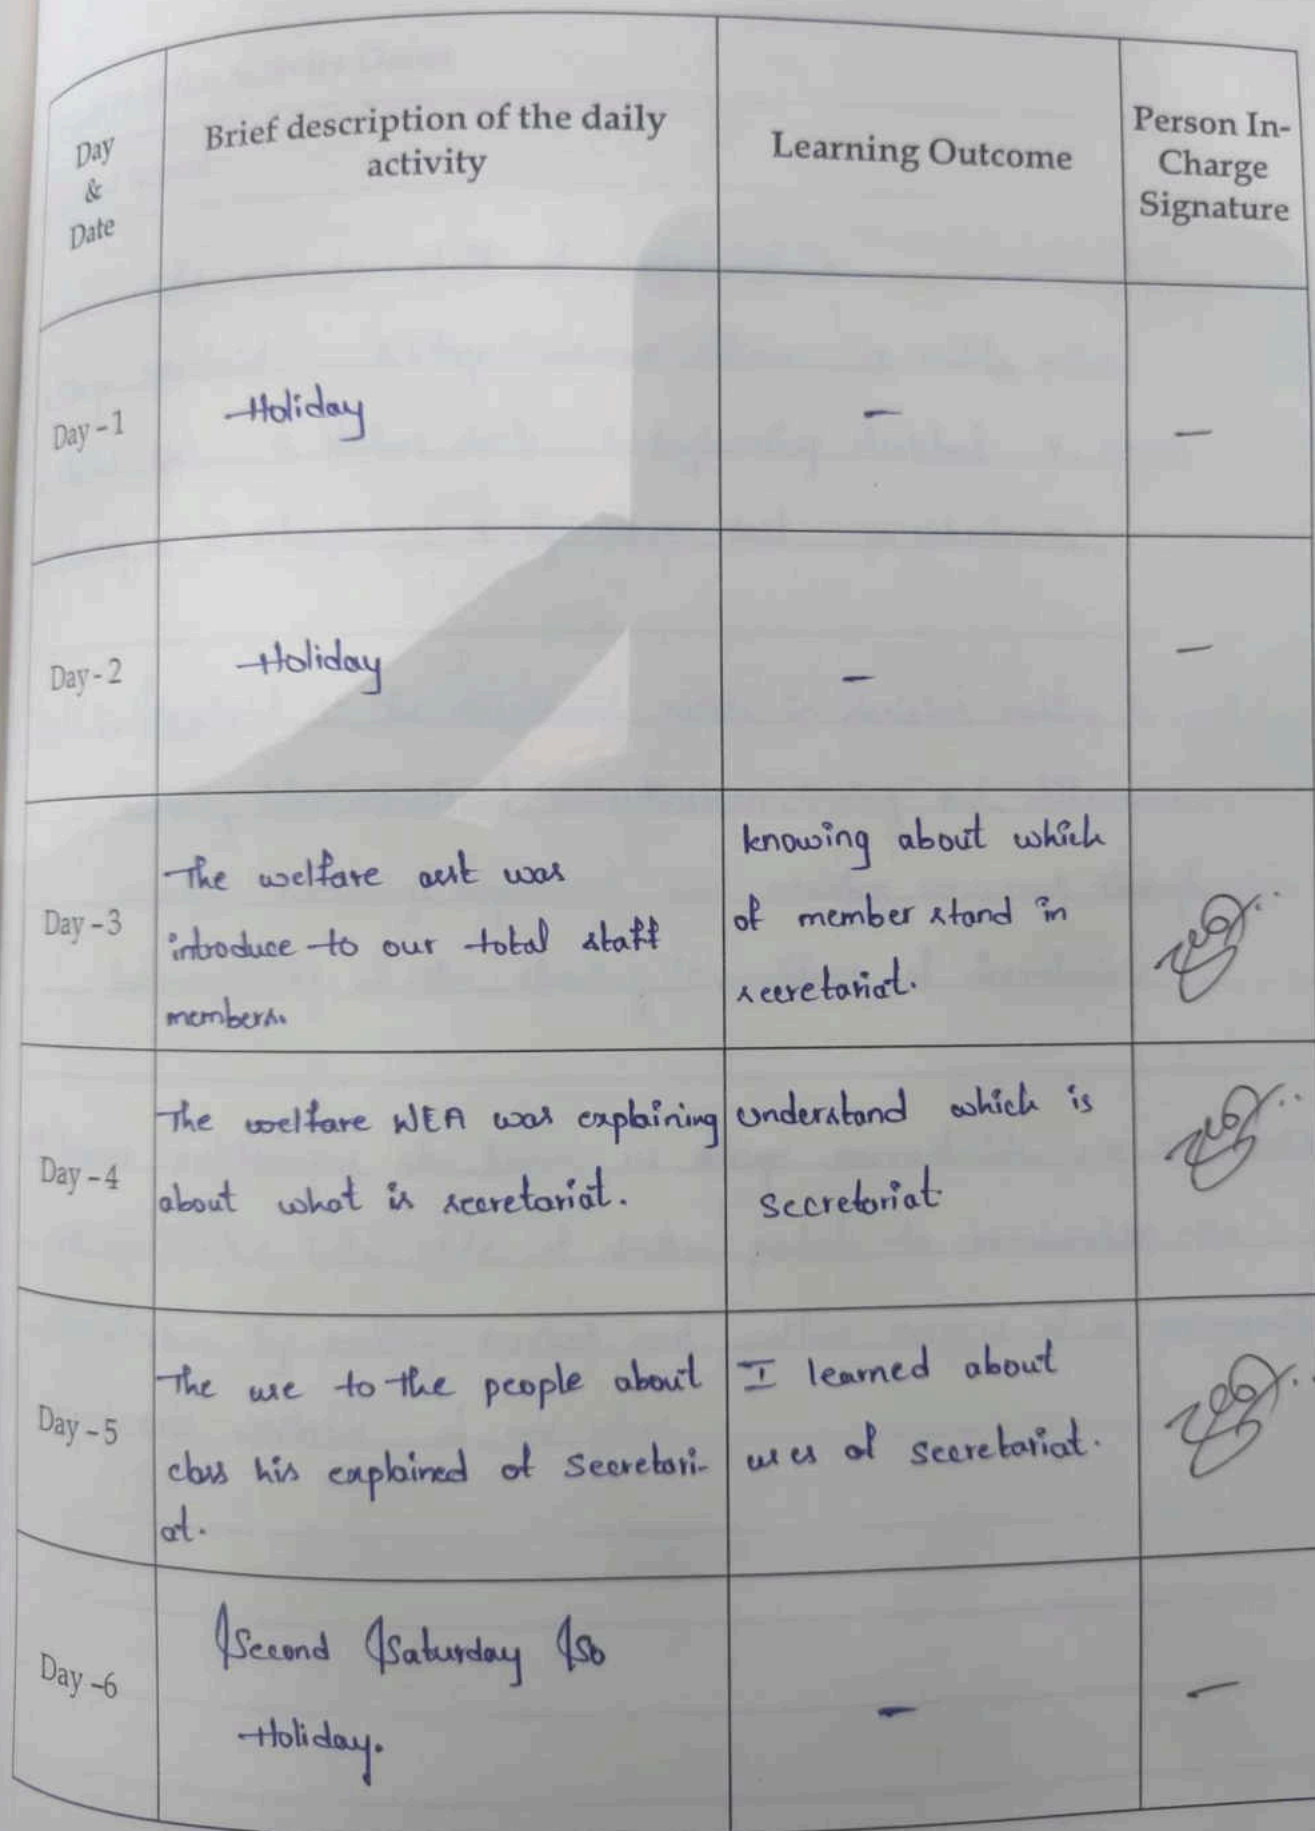 Day
&
Date
Brief description of the daily
activity
Learning Outcome
Person In-
Charge
Signature
Day - 1
Holiday
-
-
Day - 2
Holiday
-
-
Day - 3
The welfare was
introduce to our total staff
members.
knowing about which
of member stand in
secretariat.
Day - 4
The welfare WEA was explaining
about what is secretariat.
understand which is
secretariat
Day - 5
The use to the people about
class his explained of secretari-
at.
I learned about
uses of secretariat.
Day - 6
Second Saturday So
Holiday.
-
-